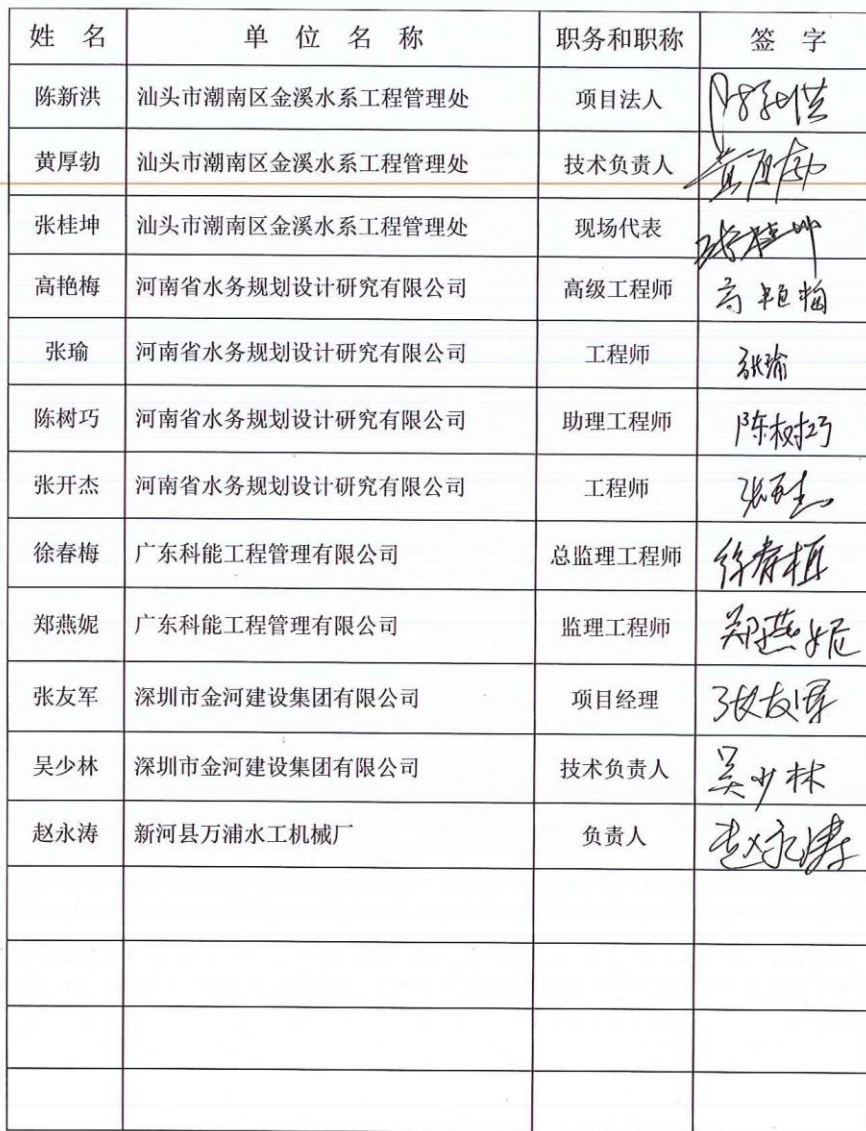 姓 名 单 位 名 称 职务和职称 签 字
陈新洪 汕头市潮南区金溪水系工程管理处 项目法人 陈新洪
黄厚勃 汕头市潮南区金溪水系工程管理处 技术负责人 黄厚勃
张桂坤 汕头市潮南区金溪水系工程管理处 现场代表 张桂坤
高艳梅 河南省水务规划设计研究有限公司 高级工程师 高艳梅
张瑜 河南省水务规划设计研究有限公司 工程师 张瑜
陈树巧 河南省水务规划设计研究有限公司 助理工程师 陈树巧
张开杰 河南省水务规划设计研究有限公司 工程师 张开杰
徐春梅 广东科能工程管理有限公司 总监理工程师 徐春梅
郑燕妮 广东科能工程管理有限公司 监理工程师 郑燕妮
张友军 深圳市金河建设集团有限公司 项目经理 张友军
吴少林 深圳市金河建设集团有限公司 技术负责人 吴少林
赵永涛 新河县万浦水工机械厂 负责人 赵永涛